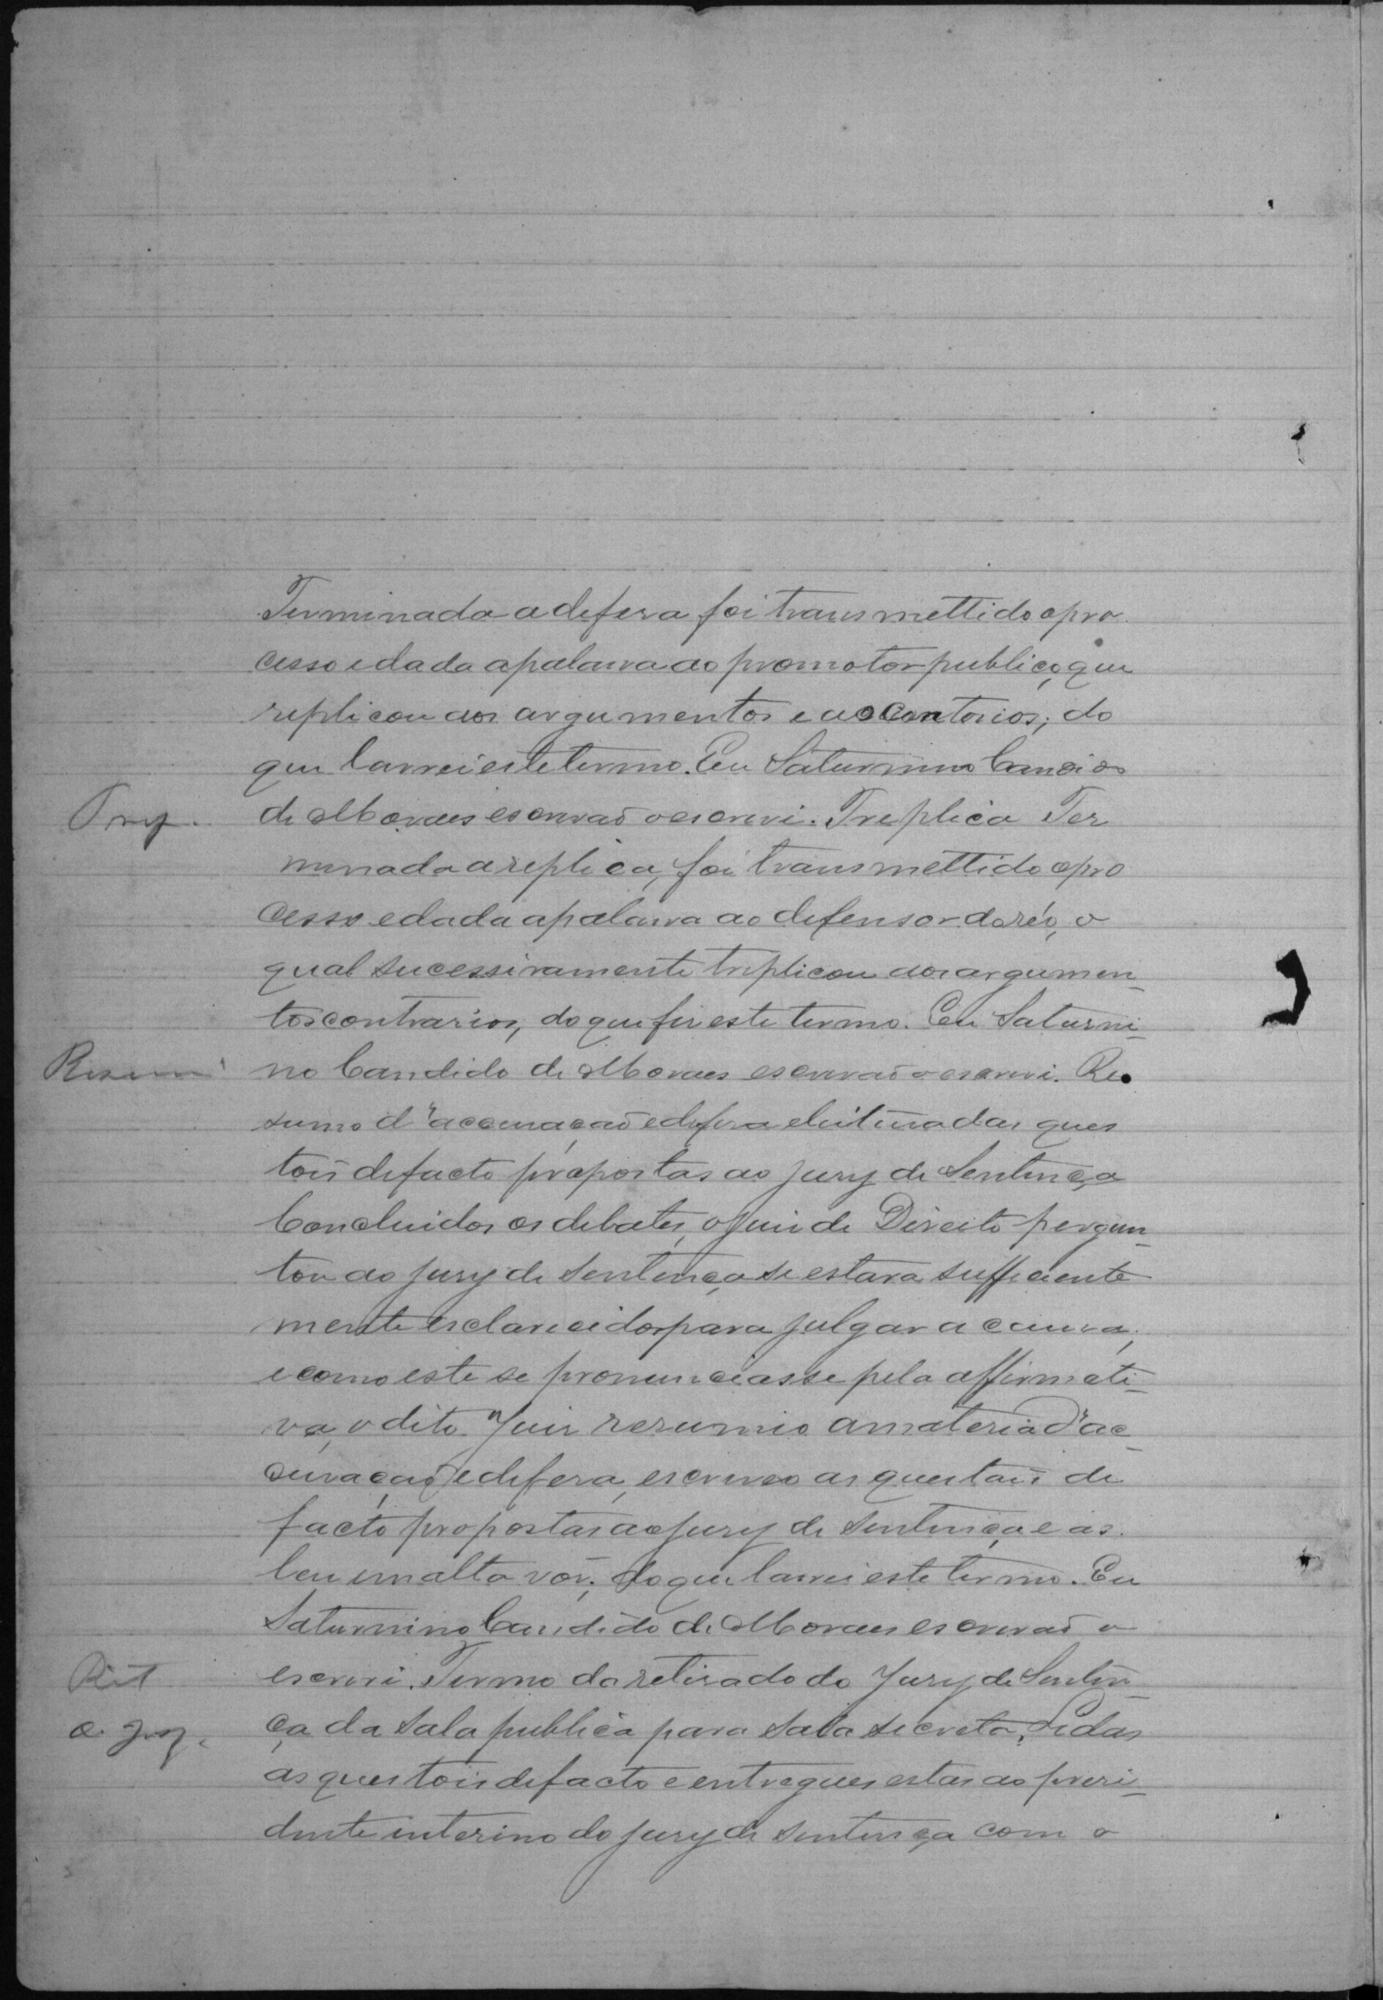 Terminada a defesa foi transmettido o pro
cesso e dada a palavra ao promotor publico, que
replicou aos argumentos e ao contorios; do
que lavrei este termo. Eu Saturnino Candido
de Moraes escrivaõ o escrevi. Treplica Ter
minada a replica, foi transmettido o pro
cesso e dada a palavra ao defensor do réo, o
qual sucessivamente treplicou aos argumen-
tos contrarios, do que fiz este termo. Eu Saturni-
Resum
no Candido de Moraes escrivaõ o escrevi. Re
sumo d'accusaçaõ e defesa e leitura das ques
toẽs de facto propostas ao jury de Sentença
Concluidos os debates, o Juiz de Direito pergun-
tou ao jury de Sentença se estava sufficiente
mente esclarecidos para julgar a causa;
e como este se pronunciasse pela affirmati-
va, o dito Juiz resumio a materia d'ac-
cusaçaõ e defesa, escreveo as questoẽs de
facto propostas ao jury de Sentença e as
leu em alta voz; do que lavrei este termo. Eu
Saturnino Candido de Moraes escrivaõ o
Ret
escrevi. Termo da retirada do Jury de Senten-
ça da sala publica para sala secreta. Lidas
as questoẽs de facto e entregues estas ao presi-
dente interino do jury de Sentença com o